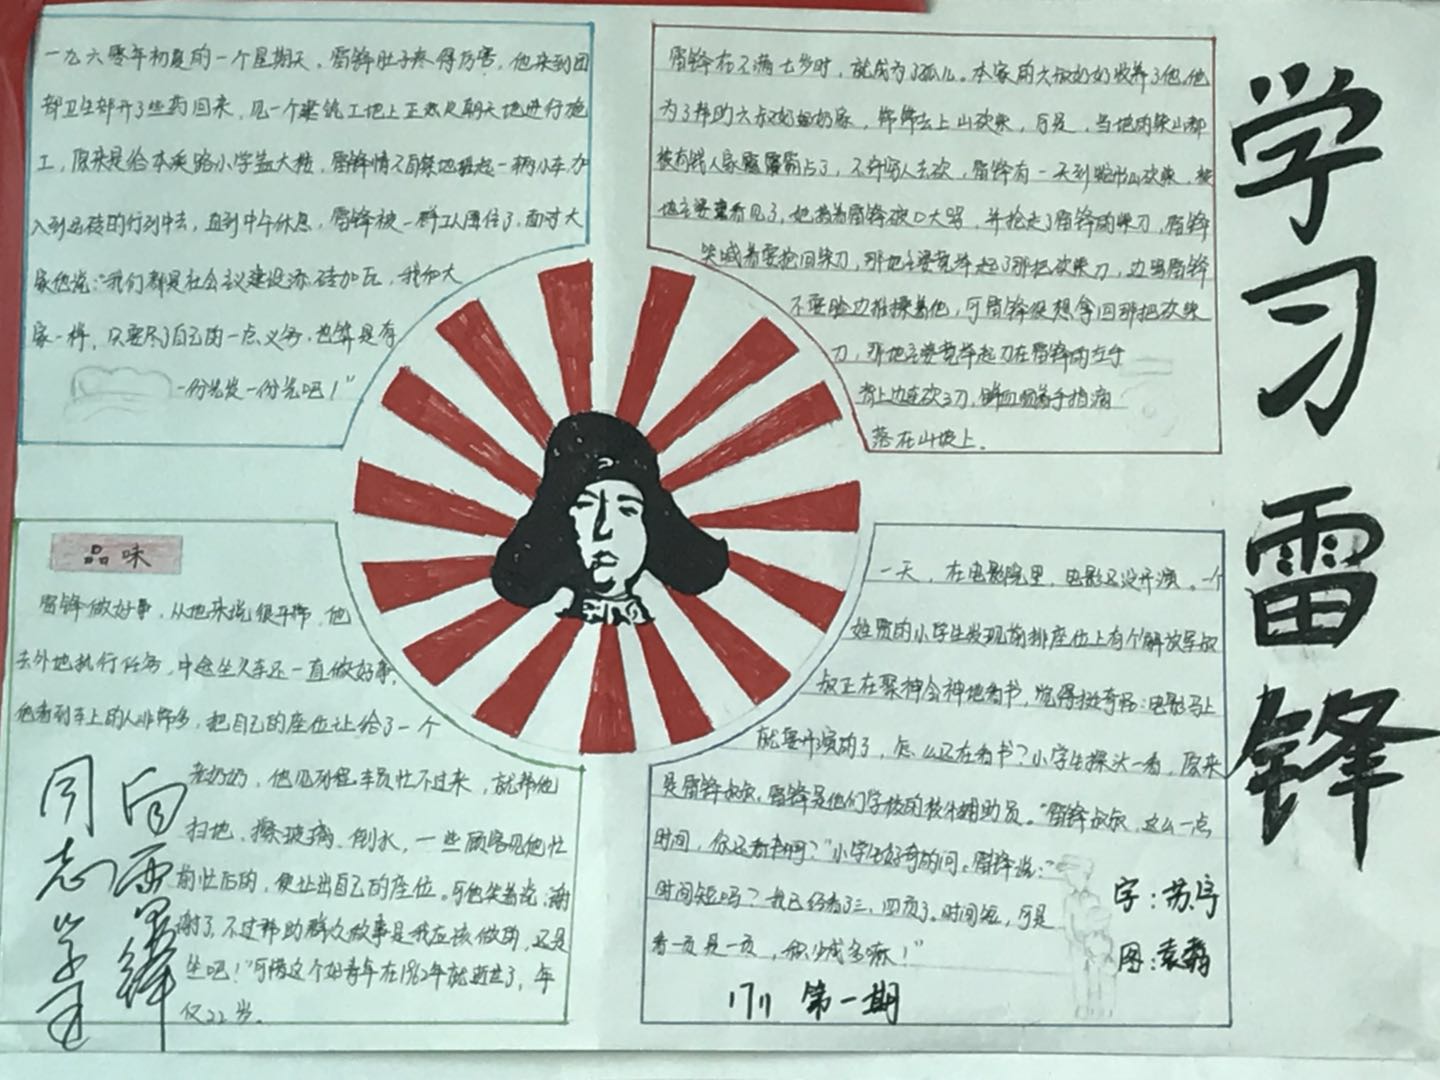 学习雷锋
一九六零年初夏的一个星期天,雷锋肚子疼得厉害,他来到团
部卫生部开了些药回来,见一个建筑工地上正热火朝天地进行施
工,原来是给本溪路小学盖大楼,雷锋情不自禁地推起一辆小车,加
入到运砖的行列中去,直到中午休息,雷锋被一群工人围住了,面对大
家他说:"我们都是社会主义建设添砖加瓦,我和大
家一样,只要尽了自己的一点义务,也算是有
一份光发一份光吧!"
雷锋在不满七岁时,就成为了孤儿。本家的六叔奶奶收养了他,他
为了帮助六叔奶奶家,常常去上山砍柴,可是,当地的柴山都
被有钱人家霸占了,不许穷人去砍,雷锋有一天到蛇形山砍柴,被
地主婆看见了,她指着雷锋破口大骂,并抢走了雷锋的柴刀,雷锋
哭喊着要抢回柴刀,那地主婆竟举起了那把砍柴刀,边骂雷锋
不要脸边推搡着他,可雷锋很想拿回那把砍柴
刀,那地主婆竟举起刀在雷锋的左手
背上边连砍3刀,鲜血顺着手指滴
落在山坡上。
品味
雷锋做好事,从他来说很平常,他
去外地执行任务,中途坐火车还一直做好事,
他看到车上的人非常多,把自己的座位让给了一个
老奶奶,他见列车员忙不过来,就帮他
扫地,擦玻璃,倒水,一些顾客见他忙
前忙后的,便让出自己的座位。可他笑着说:谢
谢了,不过帮助群众做事是我应该做的,还是
坐吧!"可惜这个好青年在1962年就逝世了,年
仅22岁。
向雷锋
同志学习
一天,在电影院里,电影还没开演。一个
姓贾的小学生发现前排座位上有个解放军叔
叔正在聚神会神地看书,觉得挺奇怪:电影马上
就要开演的了,怎么还在看书?小学生探头一看,原来
是雷锋叔叔,雷锋是他们学校的校外辅助员。"雷锋叔叔,这么一点
时间,你还看书啊?"小学生好奇的问。雷锋说:"
时间短吗?我已经看了三、四页了。时间短,可是
看一页是一页,积少成多嘛!"
字:苏宁
图:袁
1711 第一期